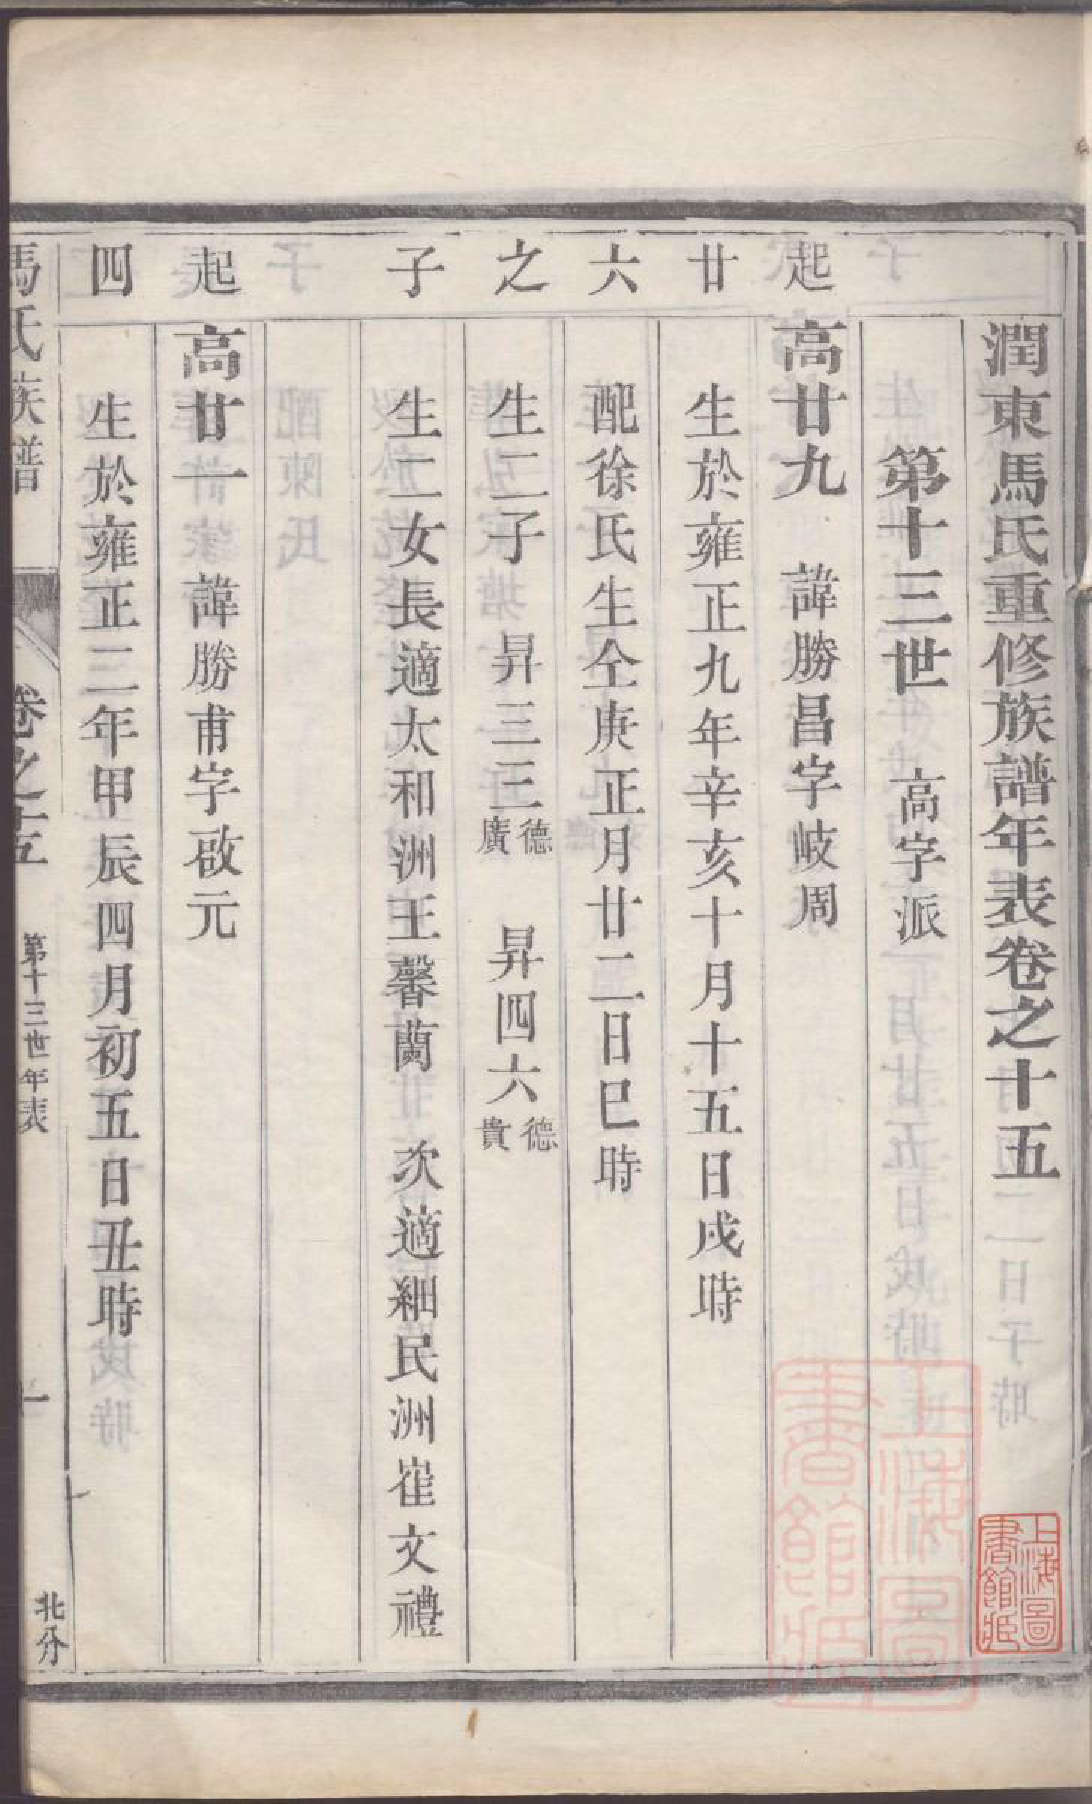 潤東馬氏重修族譜年表卷之十五
第十三世 高字派
起 高廿九 諱勝昌字岐周
廿 生於雍正九年辛亥十月十五日戌時
六 配徐氏生仝庚正月廿二日巳時
之 生二子 昇三三德廣 昇四六德貴
子 生二女長適太和洲王馨蘭 次適細民洲崔文禮
起 高廿一 諱勝甫字啟元
四 生於雍正二年甲辰四月初五日丑時
馬氏族譜 卷之十五 第十三世年表 一 北分
上海圖書館藏
上海圖書館藏